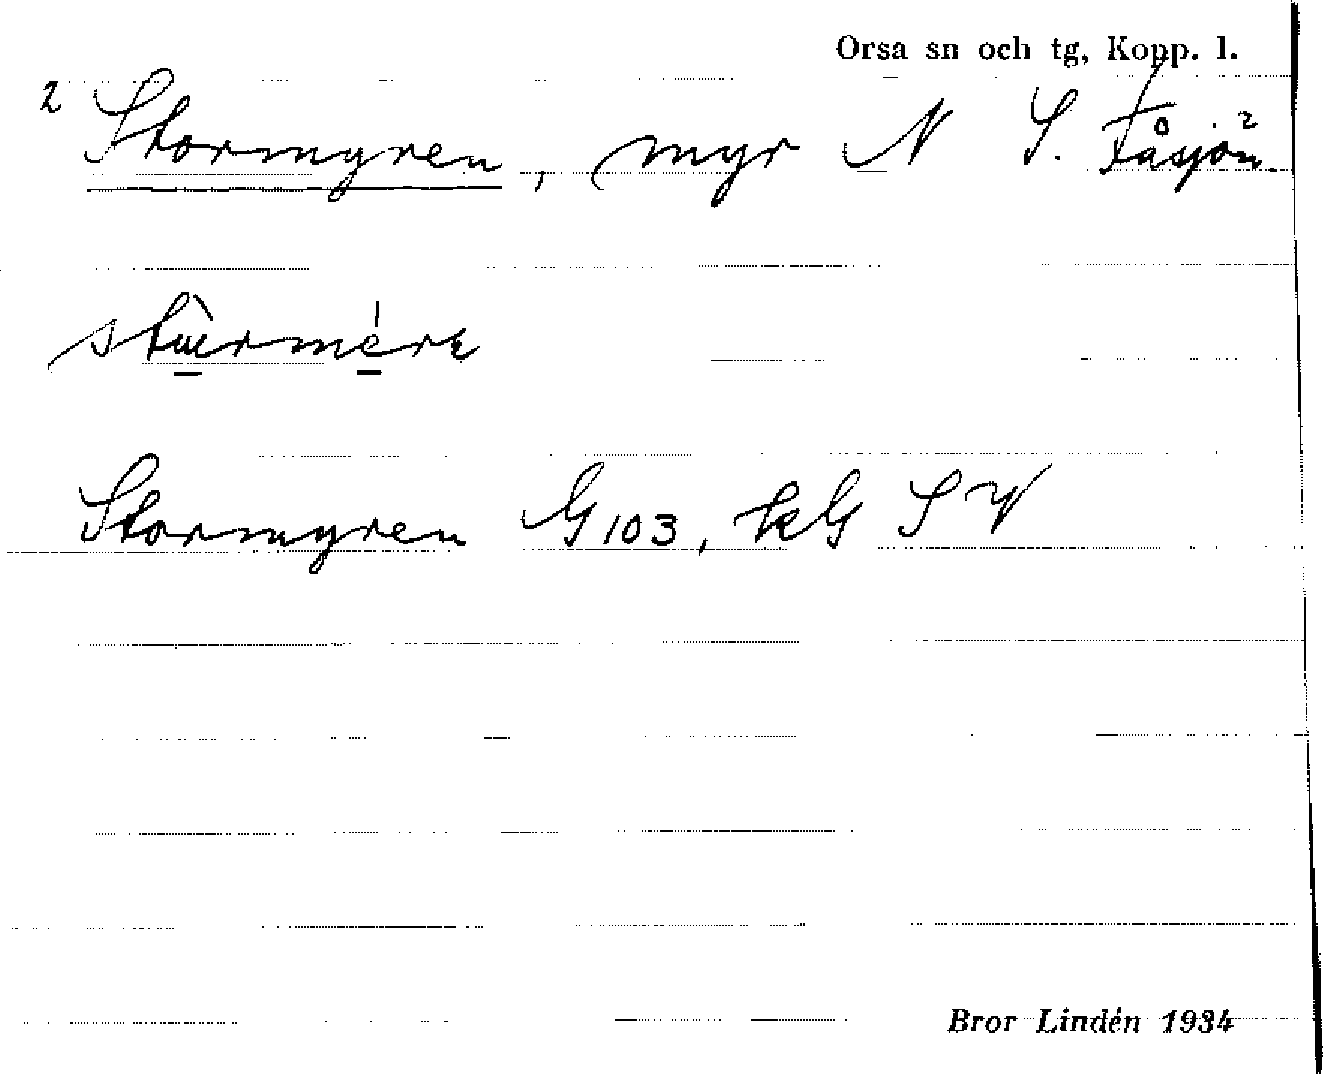 Orsa sn och tg, Kopp. l.
2 Stormyren, myr N S. Fåsjön 2
stùrmérɛ
Stormyren G103, kG SV
Bror Lindén 1934